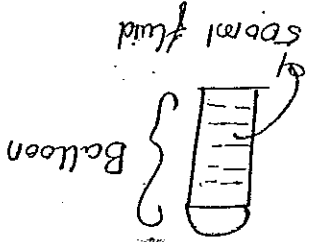 Balloon
500ml fluid